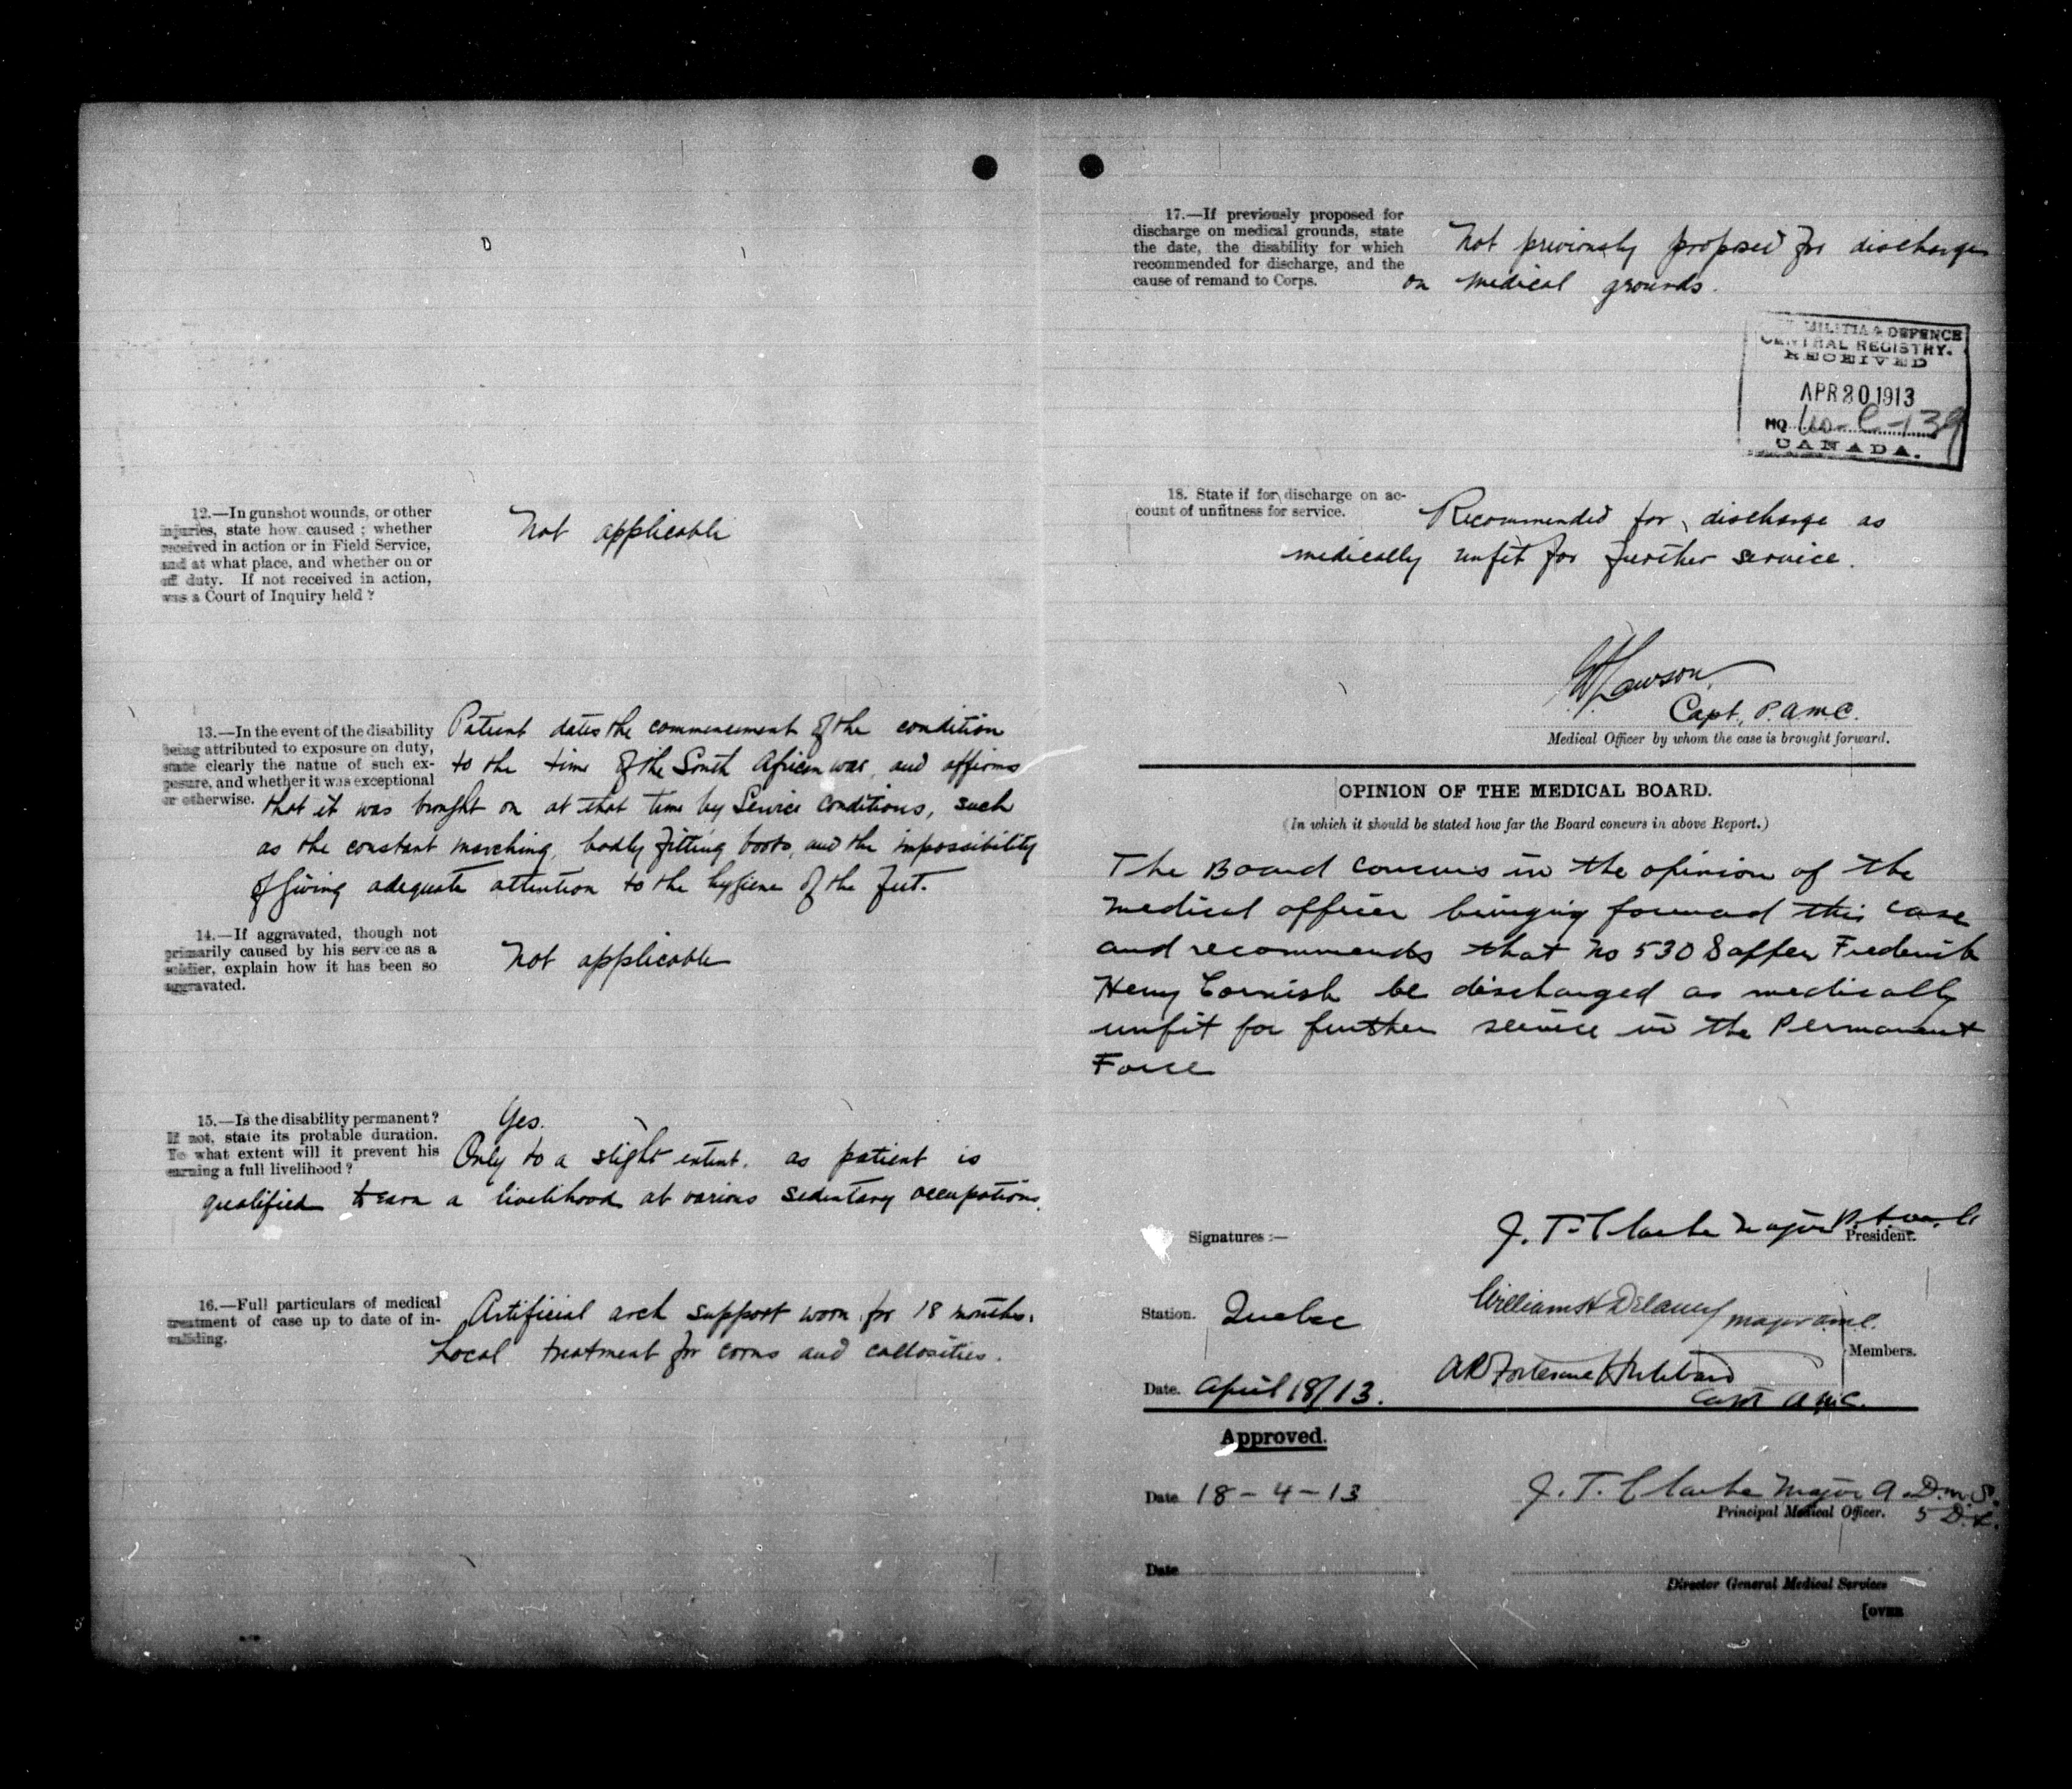 12.—In gunshot wounds, or other
injuries, state how caused ; whether
received in action or in Field Service,
and at what place, and whether on or
off duty. If not received in action,
was a Court of Inquiry held ?
Not applicable
13.—In the event of the disability
being attributed to exposure on duty,
state clearly the natue of such ex-
posure, and whether it was exceptional
or otherwise.
Patient dates the commencement of the condition
to the time of the South African war, and affirms
that it was brought on at that time by Service conditions, such
as the constant marching, badly fitting boots, and the impossibility
of giving adequate attention to the hygiene of the feet.
14.—If aggravated, though not
primarily caused by his service as a
soldier, explain how it has been so
aggravated.
Not applicable
15.—Is the disability permanent ?
If not, state its probable duration.
To what extent will it prevent his
earning a full livelihood ?
Yes.
Only to a slight extent. as patient is
qualified to earn a livelihood at various sedentary occupations.
16.—Full particulars of medical
treatment of case up to date of in-
validing.
Artificial arch support worn for 18 months.
Local treatment for corns and callosities.
17.—If previously proposed for
discharge on medical grounds, state
the date, the disability for which
recommended for discharge, and the
cause of remand to Corps.
Not previously proposed for discharge
on medical grounds.
MILITIA & DEFENCE
CENTRAL REGISTRY.
RECEIVED
APR 20 1913
HQ
CANADA.
18. State if for discharge on ac-
count of unfitness for service.
Recommended for discharge as
medically unfit for further service.
Lawson
Capt., P.A.M.C.
Medical Officer by whom the case is brought forward.
OPINION OF THE MEDICAL BOARD.
(In which it should be stated how far the Board concurs in above Report.)
The Board concurs in the opinion of the
medical officer bringing forward this case
and recommends that No 530 Sapper Frederick
Henry Cornish be discharged as medically
unfit for further service in the Permanent
Force
Signatures :—
J. T. Clarke Major P.A.M.C.
President.
Station. Quebec
William H Delaney Major A.M.C.
Members.
Date. April 18/13.
A R Fortescue Hubbard
Capt A.M.C.
Approved.
Date 18 - 4 - 13
J. T. Clarke Major A.D.M.S.
Principal Medical Officer. 5 D.
Date
Director General Medical Services
[OVER